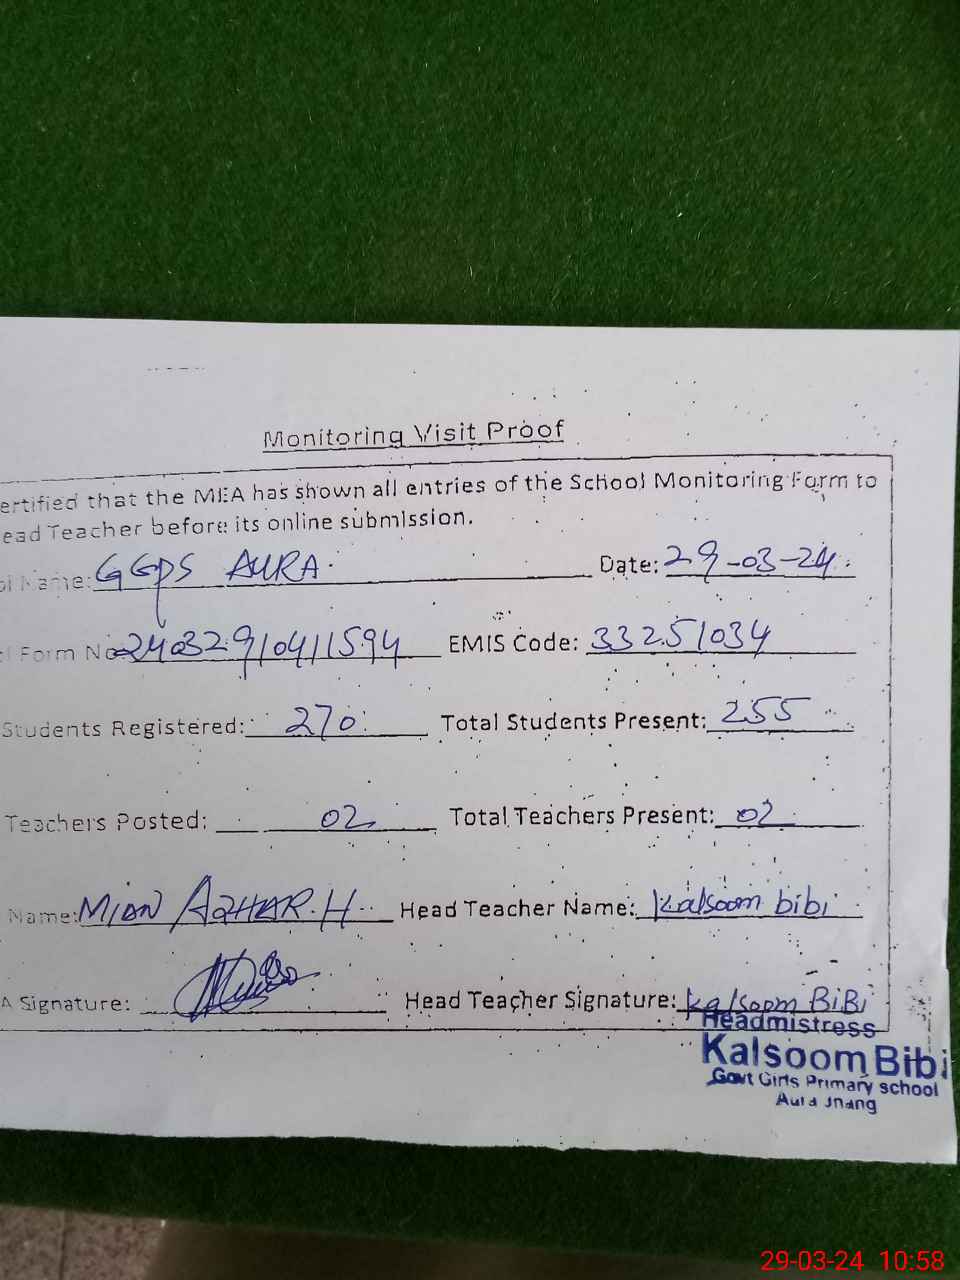 Monitoring Visit Proof
ertified that the MEA has shown all entries of the School Monitoring Form to
ead Teacher before its online submission.
ol Name: GGPS AURA. Date: 29-03-24
l Form No 24032910411594 EMIS Code: 33251034
Students Registered: 270 Total Students Present: 255
Teachers Posted: 02 Total Teachers Present: 02
Name: MIAN AZHAR.H Head Teacher Name: Kalsoom bibi
A Signature: Head Teacher Signature: Kalsoom BiBi
Headmistress
Kalsoom Bibi
Govt Girls Primary school
Aura Jhang
29-03-24 10:58